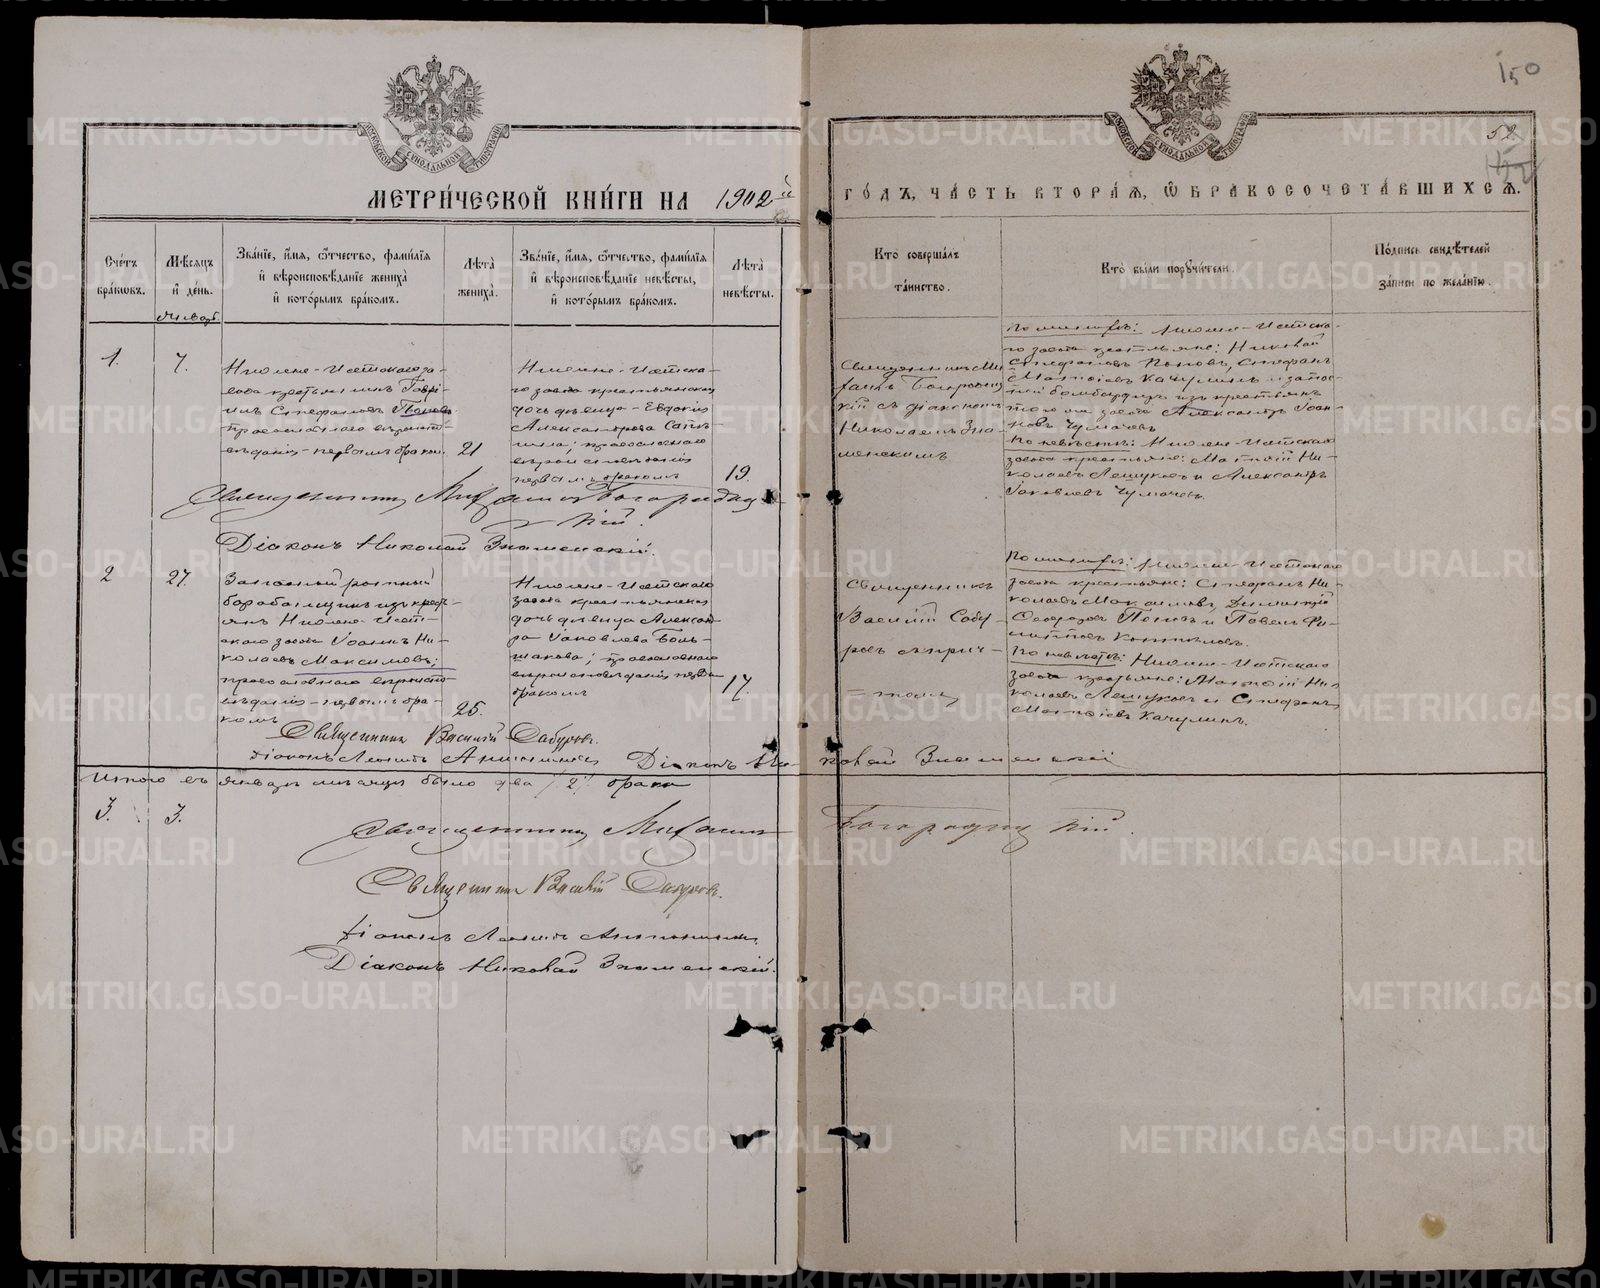 150
52
МОСКОВСКОЙ СѴНОДАЛЬНОЙ ТИПОГРАФІИ
МЕТРИ́ЧЕСКОЙ КНИ́ГИ НА 1902 й
ГО́ДЪ, ЧА́СТЬ ВТОРА́Ѧ, Ѽ БРАКОСОЧЕТА́ВШИХСѦ.
Сче́тъ бра́ковъ.
Мѣ́сяцъ и́ де́нь.
Зва́нїе, и́мя, ѻ́тчество, фами́лїя
и́ вѣроисповѣ́данїе жениха̀
и́ кото́рымъ бра́комъ.
Лѣ́та жениха̀.
Зва́нїе, и́мя, ѻ́тчество, фами́лїя
и́ вѣроисповѣ́данїе невѣ́сты,
и́ кото́рымъ бра́комъ.
Лѣ́та невѣ́сты.
Кто̀ соверша́лъ
та́инство.
Кто̀ бы́ли порꙋчи́тели.
По́дпись свидѣ́телей
за́писи по жела́нїю.
Январь
1.
7.
Нижне-Исетскаго за-
вода крестьянинъ Гаврі-
илъ Стефановъ Поповъ
православнаго вѣроиспо-
вѣданія - первымъ бракомъ
21
Нижне-Исетска-
го завода крестьянская
дочь дѣвица - Евдокія
Александрова
православнаго
вѣроисповѣданія
первымъ бракомъ
19.
Священникъ Ми-
хаилъ Богородиц-
кій съ діакономъ
Николаемъ Зна-
менскимъ
По женихѣ: Нижне-Исетска-
го завода крестьяне: Николай
Стефановъ Поповъ, Стефанъ
Матѳіевъ Качулинъ и запас-
ной бомбардиръ изъ крестьянъ
того же завода Александръ Іоан-
новъ Чумачевъ
По невѣстѣ: Нижне-Исетскаго
завода крестьяне: Матѳій Ни-
колаевъ Лешуковъ и Александръ
Іаковлевъ Чумачевъ.
Священникъ Михаилъ Богородиц-
кій.
Діаконъ Николай Знаменскій.
2
27.
Запасный ротный
барабанщикъ изъ крест-
янъ Нижне-Исет-
скаго завода Іоаннъ Ни-
колаевъ Максимовъ;
православнаго вѣроиспо-
вѣданія - первымъ бра-
комъ
25.
Нижне-Исетскаго
завода крестьянская
дочь дѣвица Александ-
ра Іаковлева Боль-
шакова; православнаго
вѣроисповѣданія первымъ
бракомъ
17.
Священникъ
Василій Сабу-
ровъ съ прич-
томъ
По женихѣ: Нижне-Исетскаго
завода крестьяне: Стефанъ Ни-
колаевъ Максимовъ, Димитрій
Ѳеодоровъ Поповъ и Павелъ Фи-
липповъ
По невѣстѣ: Нижне-Исетскаго
завода крестьяне: Матѳій Ни-
колаевъ Лешуковъ и Стефанъ
Матѳіевъ Качулинъ.
Священникъ Василій Сабуровъ.
Діаконъ Леонидъ Діаконъ Николай Знаменскій
Итого въ январѣ мѣсяцѣ было два /2/ брака
3.
3.
Священникъ Михаилъ Богородицкій.
Священникъ Василій Сабуровъ.
Діаконъ Леонидъ
Діаконъ Николай Знаменскій.
METRIKI.GASO-URAL.RU